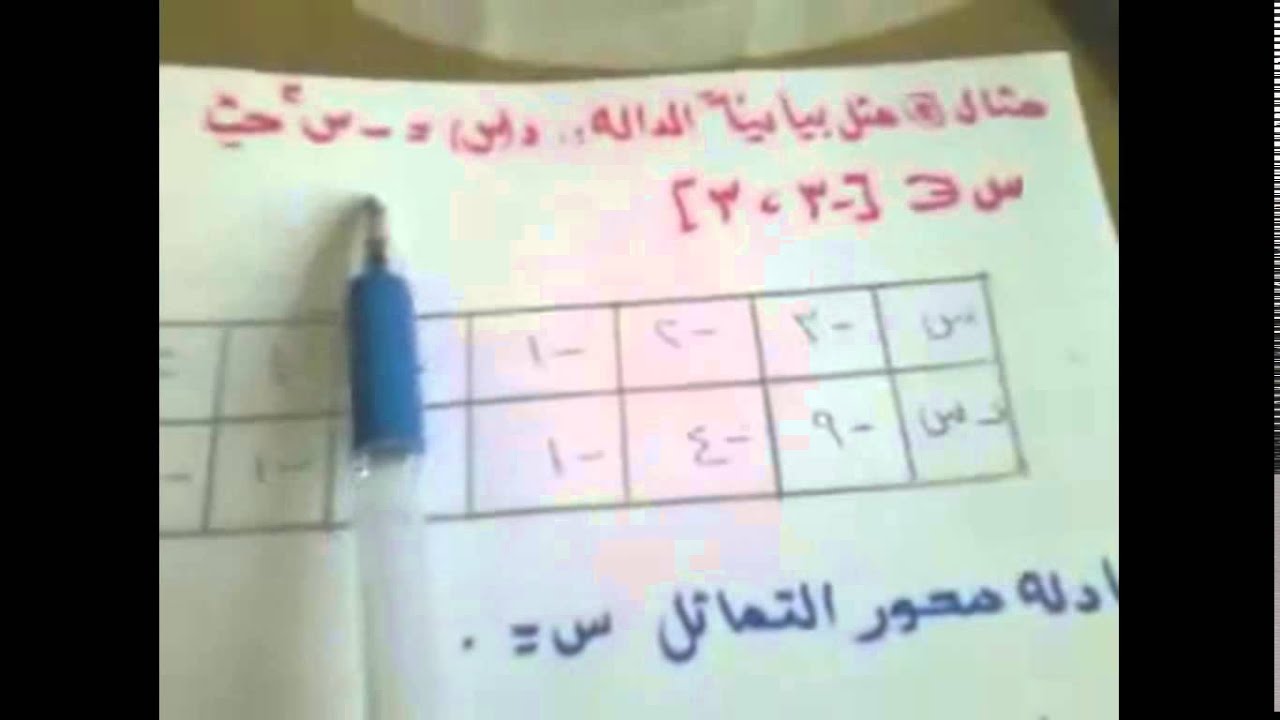 مثال مثل بيانياً الداله .. د(س) = - س٢ حيث
س ∈ [-٣ ، ٣]
س -٣ -٢ -١
د س -٩ -٤ -١ -١ -
ادله محور التماثل س = ٠